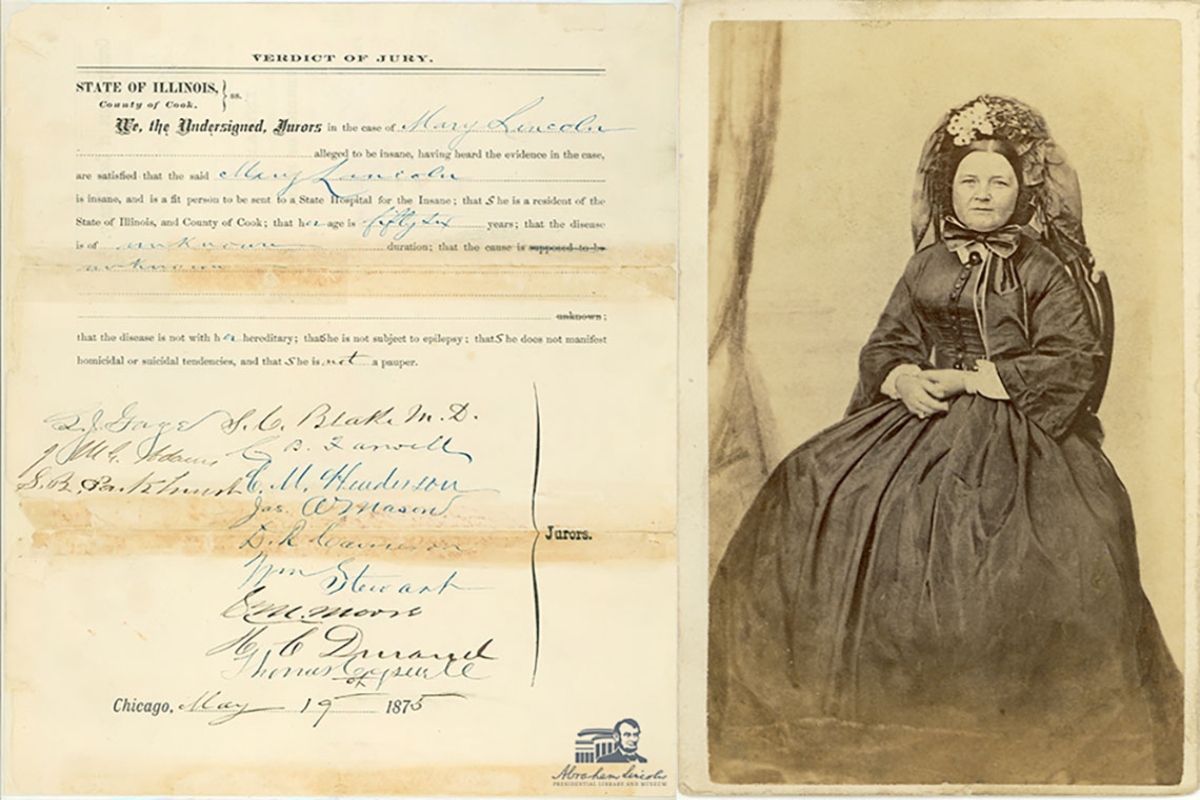 VERDICT OF JURY.
STATE OF ILLINOIS, } ss.
County of Cook.
We, the Undersigned, Jurors in the case of Mary Lincoln
alleged to be insane, having heard the evidence in the case,
are satisfied that the said Mary Lincoln
is insane, and is a fit person to be sent to a State Hospital for the Insane; that She is a resident of the
State of Illinois, and County of Cook; that her age is fifty six years; that the disease
is of unknown duration; that the cause is supposed to be
unknown
unknown;
that the disease is not with her hereditary; that She is not subject to epilepsy; that S he does not manifest
homicidal or suicidal tendencies, and that S he is not a pauper.
L. J. Gage S. C. Blake M. D.
J McG. Adams C. B. Farwell
S. B. Parkhurst C. M. Henderson
Jas. A Mason
D. R. Cameron
Wm Stewart
Jurors.
Moore
H. C. Durand
Thomas
Chicago, May 19 1875
Abraham Lincoln
PRESIDENTIAL LIBRARY AND MUSEUM